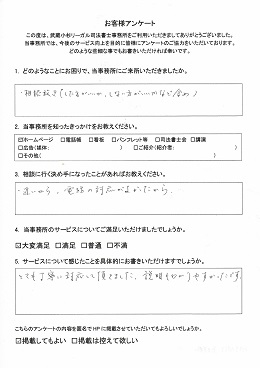 お客様アンケート
この度は、武蔵小杉リーガル司法書士事務所をご利用いただきましてありがとうございました。
当事務所では、今後のサービス向上を目的に皆様にアンケートのご協力をいただいております。
どのような些細な事でもお書きいただければ幸いです。
1. どのようなことにお困りで、当事務所にご来所いただきましたか。
・相続放棄(した方がいいか、しない方がいいかなど含め)
2. 当事務所を知ったきっかけをお教えください。
☑ホームページ □電話帳 □看板 □パンフレット等 □司法書士会 □講演
□広告(媒体: ) □ご紹介(紹介者: )
□その他( )
3. 相談に行く決め手になったことがあればお教えください。
・近いから、電話の対応がよかったから。
4. 当事務所のサービスについてご満足いただけましたでしょうか。
☑大変満足 □満足 □普通 □不満
5. サービスについて感じたことを具体的にお書きいただけますでしょうか。
とても丁寧に対応して頂きました。説明もわかりやすかったです。
こちらのアンケートの内容を匿名でHPに掲載させていただいてもよろしいでしょうか。
☑掲載してもよい □掲載は控えて欲しい